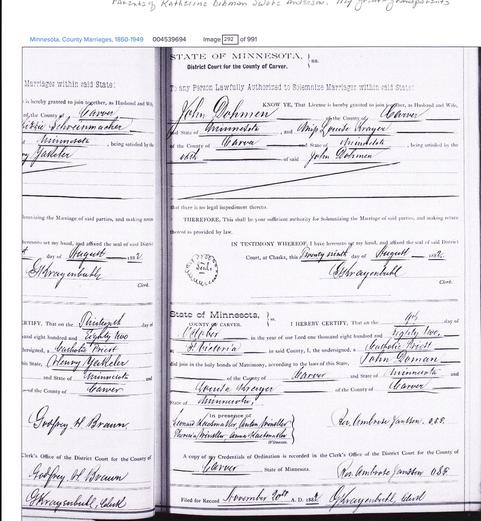 Parents of Katherine
Minnesota, County Marriages, 1860-1949 004539694 Image 292 of 991
Marriages within said State:
is hereby granted to join together, as Husband and Wife,
of the County of Carver
Minnesota, being satisfied by the
Yakeler
solemnizing the Marriage of said parties, and making return
hereunto set my hand, and affixed the seal of said District
day of August 1882
G Krayenbuhl
Clerk.
CERTIFY, That on the Thirtieth day of
thousand eight hundred and Eighty two
undersigned, a Catholic Priest
Henry Yakeler
and State of Minnesota and
of the County of Carver
Godfrey H Braun.
Clerk's Office of the District Court for the County of
Godfrey H Braun
G Krayenbuhl, Clerk
STATE OF MINNESOTA, ss.
District Court for the County of Carver.
To any Person Lawfully Authorized to Solemnize Marriages within said State:
KNOW YE, That License is hereby granted to join together, as Husband and Wife,
John Dohmen of the County of Carver
and State of Minnesota, and Miss Louise Krayer
of the County of Carver and State of Minnesota, being satisfied by the
oath of said John Dohmen
that there is no legal impediment thereto.
THEREFORE, This shall be your sufficient authority for Solemnizing the Marriage of said parties, and making return
thereof as provided by law.
IN TESTIMONY WHEREOF, I have hereunto set my hand, and affixed the seal of said District
Court, at Chaska, this Twenty ninth day of August 1882.
Seal
G Krayenbuhl
Clerk.
State of Minnesota, ss.
COUNTY OF CARVER. I HEREBY CERTIFY, That on the 9th day of
October in the year of our Lord one thousand eight hundred and Eighty two,
at Victoria in said County, I, the undersigned, a Catholic Priest
did join in the holy bonds of Matrimony, according to the laws of this State, John Doman
of the County of Carver and State of Minnesota and
of the County of Carver
State of Minnesota,
in presence of
Leonard
Anna
Witnesses.
Rev. Ambrose Janssen, O.S.F.
A copy of the Credentials of Ordination is recorded in the Clerk's Office of the District Court for the County of
Carver State of Minnesota.
Rev. Ambrose Janssen O.S.F.
Filed for Record November 20th A. D. 1882 G Krayenbuhl, Clerk